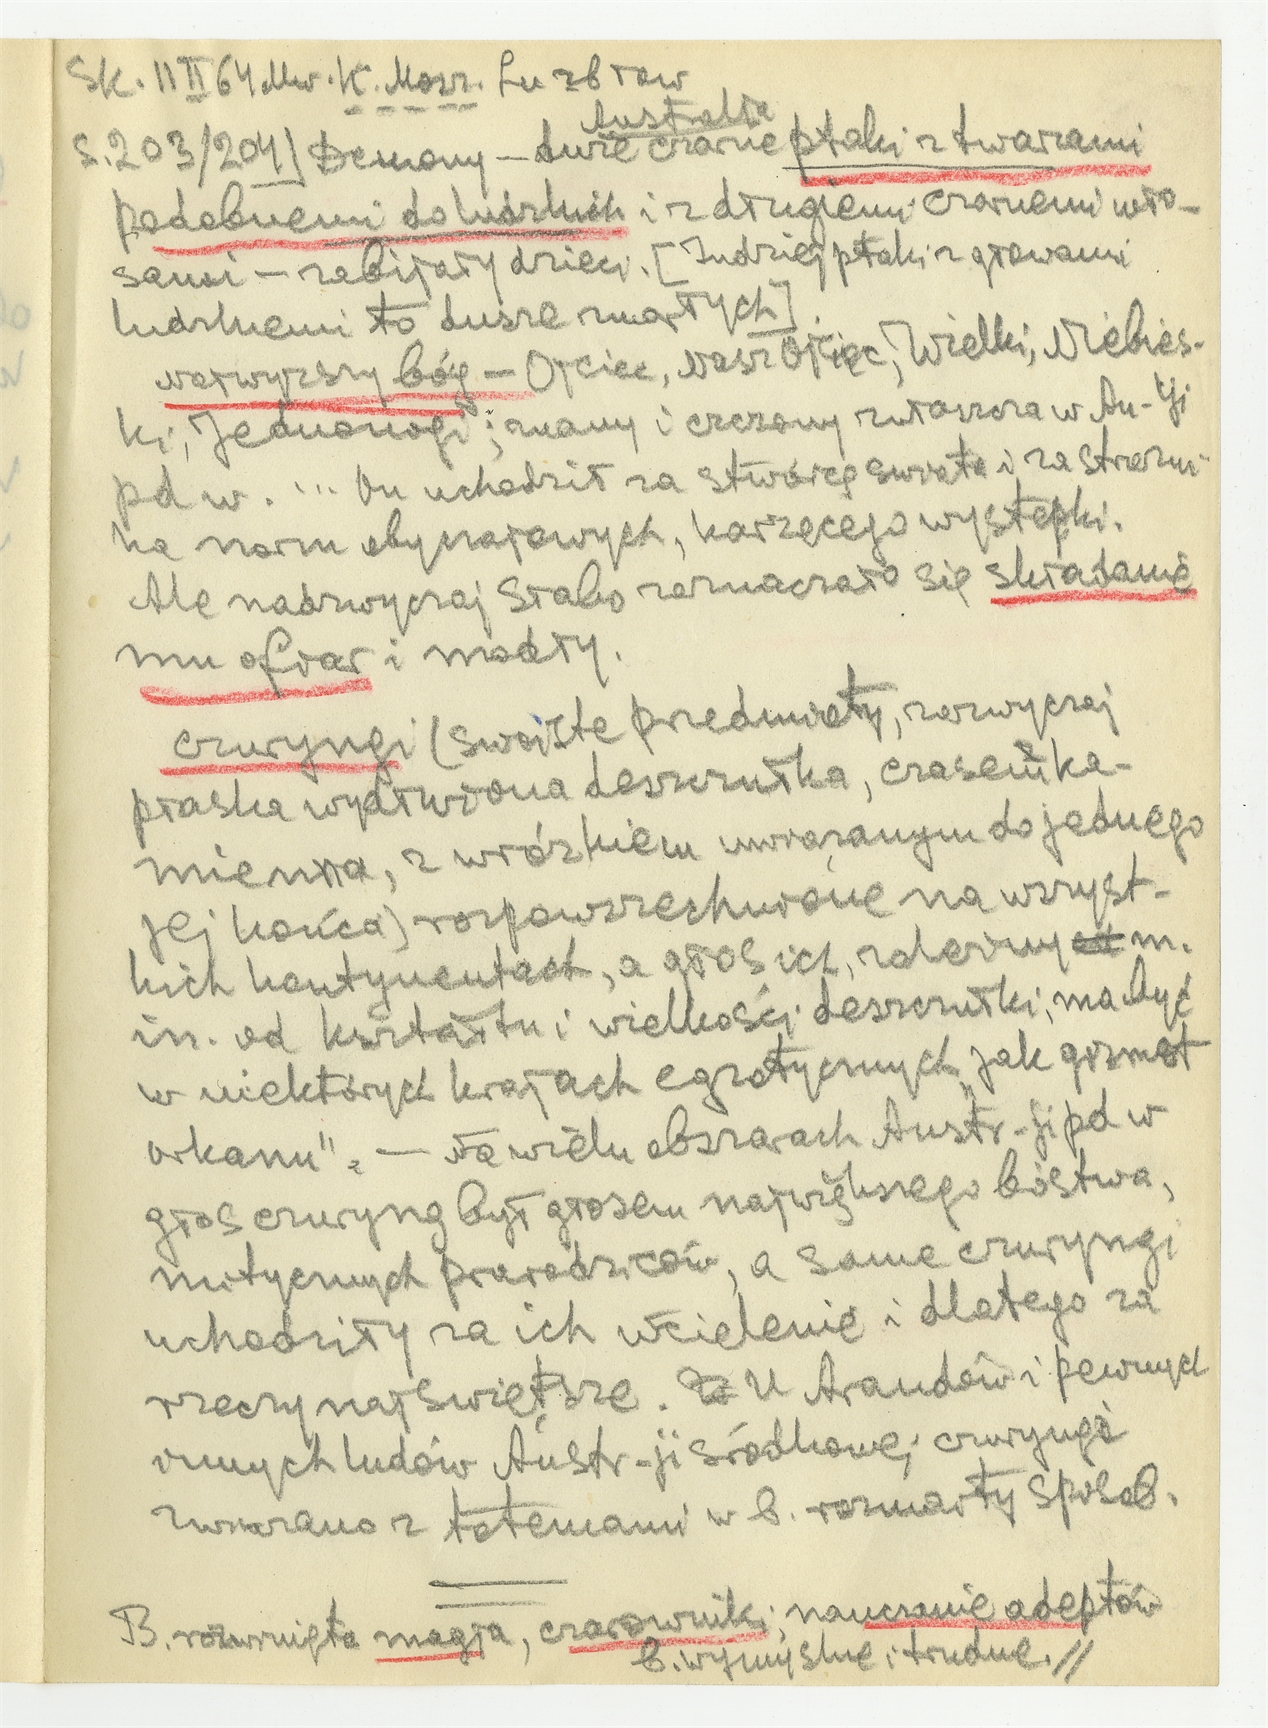 Sk. 11 II 64 Mw. K. Mosz. Lu zbiow
Australia
s. 203/204] Demony – duże czarne ptaki z twarzami
podobnemi do ludzkich i z długiemi czarnemi wło-
sami – zabijały dzieci. [Indziej ptaki z głowami
ludzkiemi to dusze zmarłych].
najwyższy bóg – Ojciec, Nasz Ojciec, Wielki, Niebies-
ki, Jednonogi; znany i czczony zwłaszcza w Au-lji
pd w. ... On uchodził za stwórcę świata i za strażni-
ka norm obyczajowych, karzącego występki.
Ale nadzwyczaj słabo zaznaczało się składanie
mu ofiar i modły.
czuryngi (swoiste przedmioty, zazwyczaj
płaska wydłużona deszczułka, czasem ka-
mienna, z wrózkiem uwiązanym do jednego
jej końca) rozpowszechnione na wszyst-
kich kontynentach, a głos ich, zależny m.
in. od kształtu i wielkości deszczułki, ma być
w niektórych krajach egzotycznych „jak grzmot
orkanu". – Na wielu obszarach Austr-ji pd w
głos czuryng był głosem największego bóstwa,
mitycznych prarodziców, a same czuryngi
uchodziły za ich wcielenie i dlatego za
rzeczy najświętsze. U Arandów i pewnych
innych ludów Austr-ji środkowej czuryngi
związano z totemami w b. rozmaity sposób.
B. rozwinięta magja, czarowniki, nauczanie adeptów
b. wymyślne i trudne. //